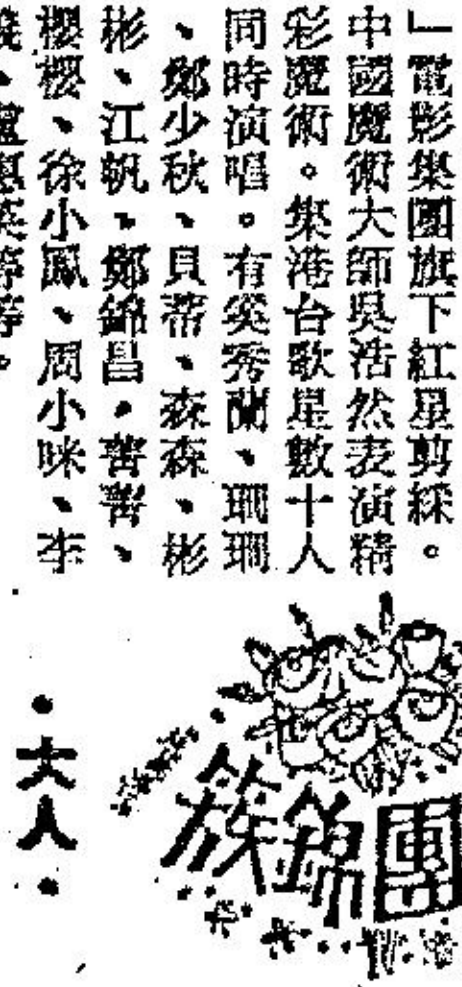 」電影集團旗下紅星剪綵。
中國魔術大師吳浩然表演精
彩魔術。集港台歌星數十人
同時演唱。有奚秀蘭、
、鄭少秋、貝蒂、森森、彬
彬、江帆、鄭錦昌、
櫻櫻、徐小鳳、周小咪、李
等等。
團錦簇
·大人·